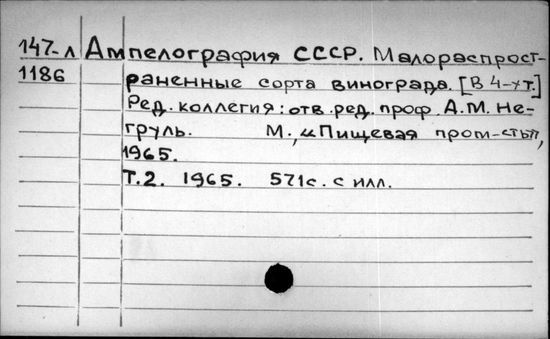 147-л Ампелография СССР. Малораспрост-
1186 раненные сорта винограда. [В 4-х т.]
Ред. коллегия: отв. ред. проф. А.М. Не-
груль. М., „Пищевая пром-сть",
1965.
Т.2. 1965. 571с. с илл.